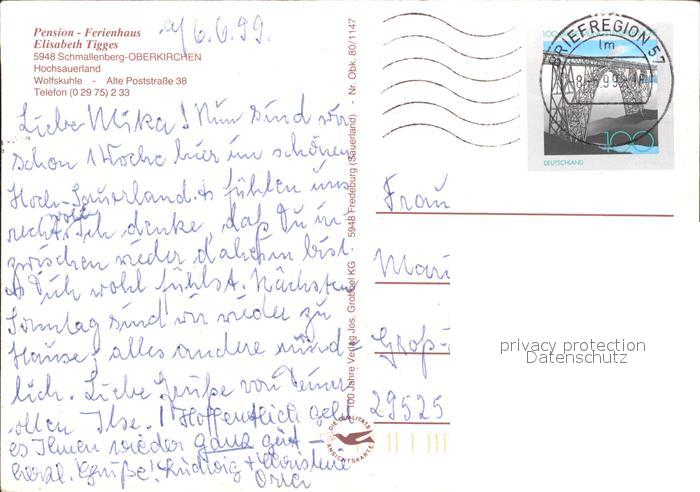 Pension - Ferienhaus
Elisabeth Tigges
5948 Schmallenberg-OBERKIRCHEN
Hochsauerland
Wolfskuhle - Alte Poststraße 38
Telefon (0 29 75) 2 33
6.6.99.
Liebe Mika! Nun sind wir
schon 1 Woche hier im schönen
Hoch-Sauerland. fühlen uns
recht wohl. Ich denke, daß Du in-
zwischen wieder daheim bist.
Dich wohl fühlst. Nächsten
Sonntag sind wir wieder zu
Hause, alles andere münd-
lich. Liebe Grüße von Deiner
ollen Ilse. ! Hoffentlich geht
es Ihnen wieder ganz gut -
herzl. Grüße! Ludwig + Christine
100 Jahre Verlag Jos. Grobbel KG 5948 Fredeburg (Sauerland) - Nr. Obk. 80/1147
DIE QUALITÄTS
ANSICHTSKARTE
BRIEFREGION 57
lm
99-18
100
DEUTSCHLAND
Frau
Groß-
29525
privacy protection
Datenschutz